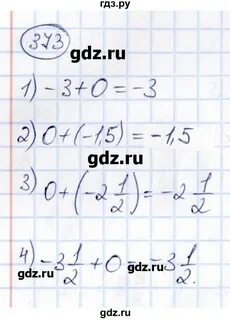 гдз.ру
373
gdz.ru
1) -3+0=-3
gdz.ru
2) 0+(-1,5)=-1,5
gdz.ru
3) 0+(-2 1/2)=-2 1/2
gdz.ru
4) -3 1/2+0=-3 1/2.
gdz.ru